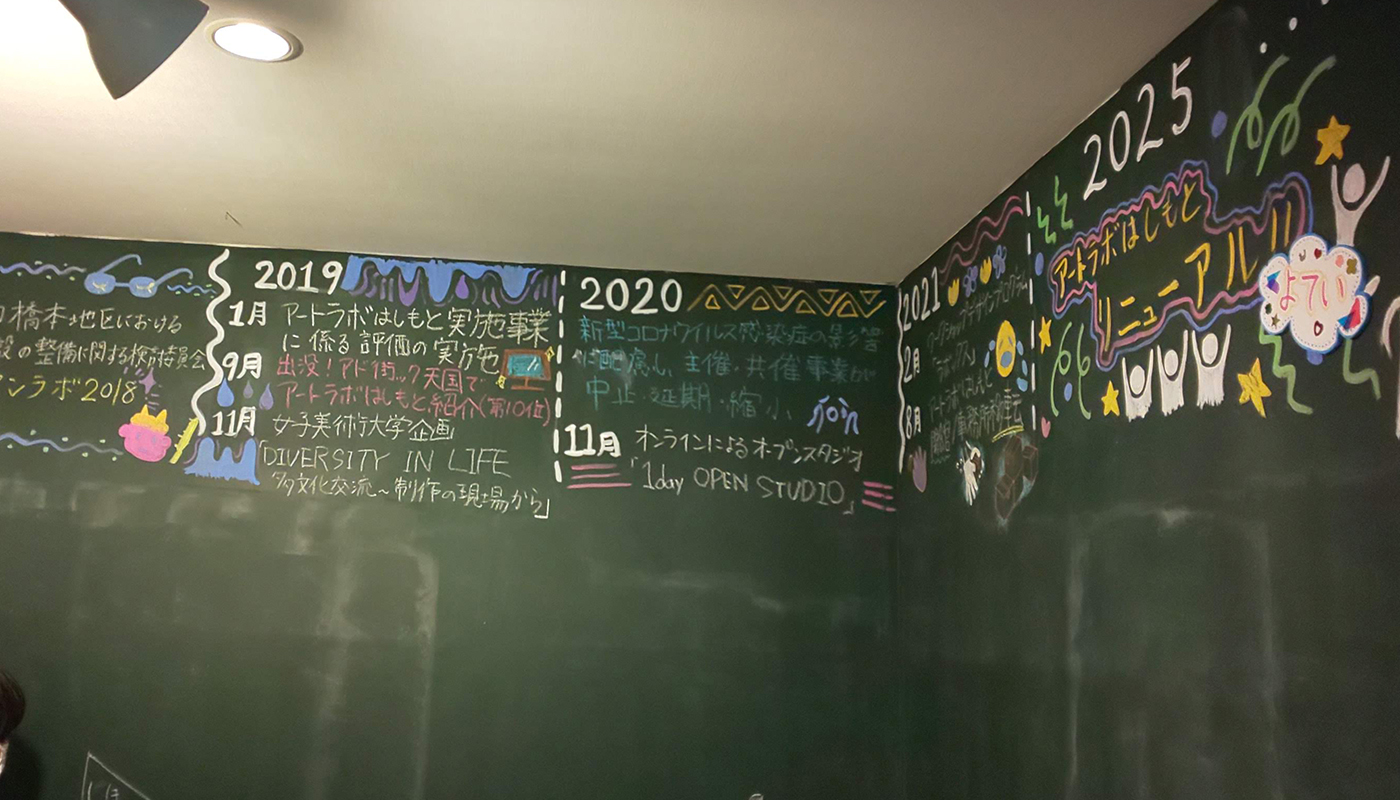 橋本地区における
の整備に関する検討委員会
ンラボ2018
2019
1月
アートラボはしもと実施事業
に係る評価の実施
9月
出没!アド街ック天国で
アートラボはしもと紹介(第10位)
11月
女子美術大学企画
「DIVERSITY IN LIFE
多文化交流~制作の現場から」
2020
新型コロナウイルス感染症の影響
に配慮し、主催・共催事業が
中止・延期・縮小
11月
オンラインによるオープンスタジオ
「1day OPEN STUDIO」
2021
2月
8月
アートラボはしもと
2025
アートラボはしもと
リニューアル!!
よてい